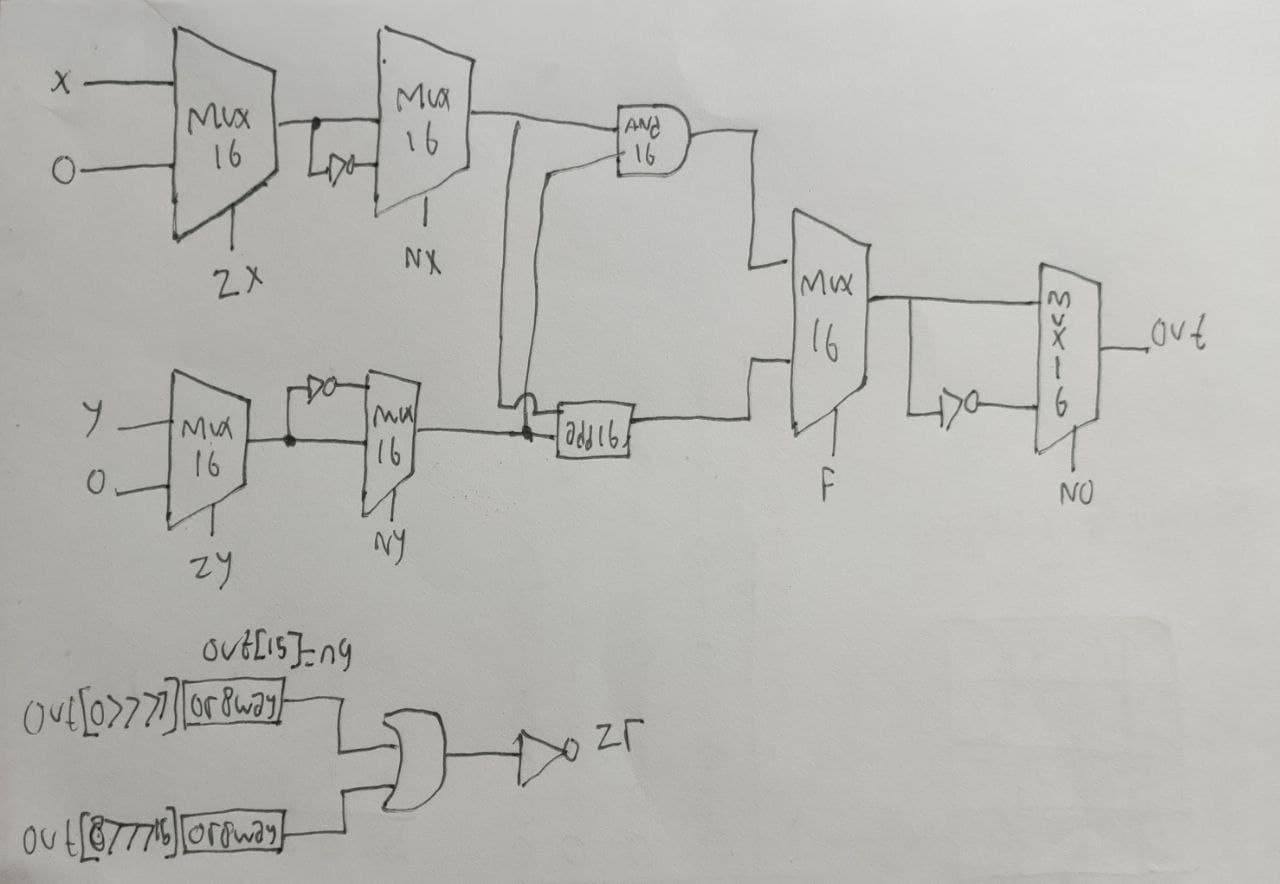 X
0
Mux
16
ZX
Mux
16
NX
AND
16
Mux
16
F
MUX16
NO
out
y
0
Mux
16
Zy
Mux
16
Ny
add16
out[15]=ng
out[0>>>7] or8way
out[8>>>15] or8way
zr